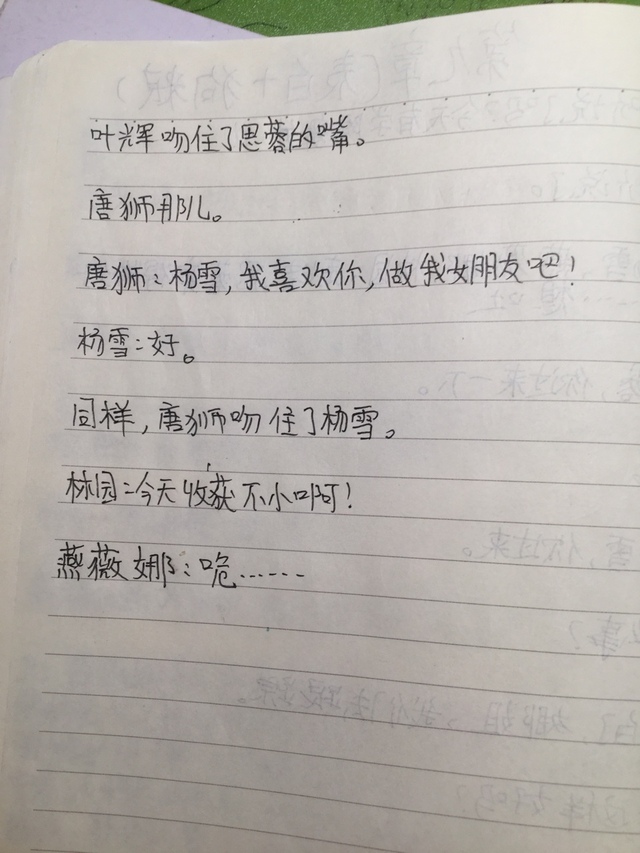 叶辉吻住了思蓉的嘴。
唐狮那儿。
唐狮：杨雪，我喜欢你，做我女朋友吧！
杨雪：好。
同样，唐狮吻住了杨雪。
林园：今天收获不小啊！
燕薇娜：呃……